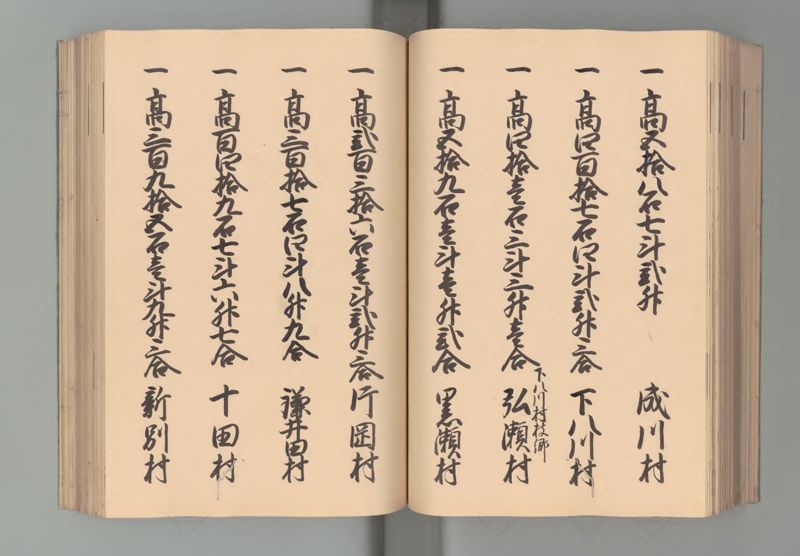 一 高五拾八石七斗弐升 成川村
一 高四百拾七石四斗弐升三合 下八川村
一 高四拾壱石三斗三升壱合 下八川村枝郷 弘瀬村
一 高五拾九石壱斗壱升弐合 黒瀬村
一 高弐百三拾六石壱斗弐升三合 片岡村
一 高三百拾七石四斗八升九合 鎌井田村
一 高百四拾九石七斗六升七合 十田村
一 高三百九拾五石壱斗九升三合 新別村